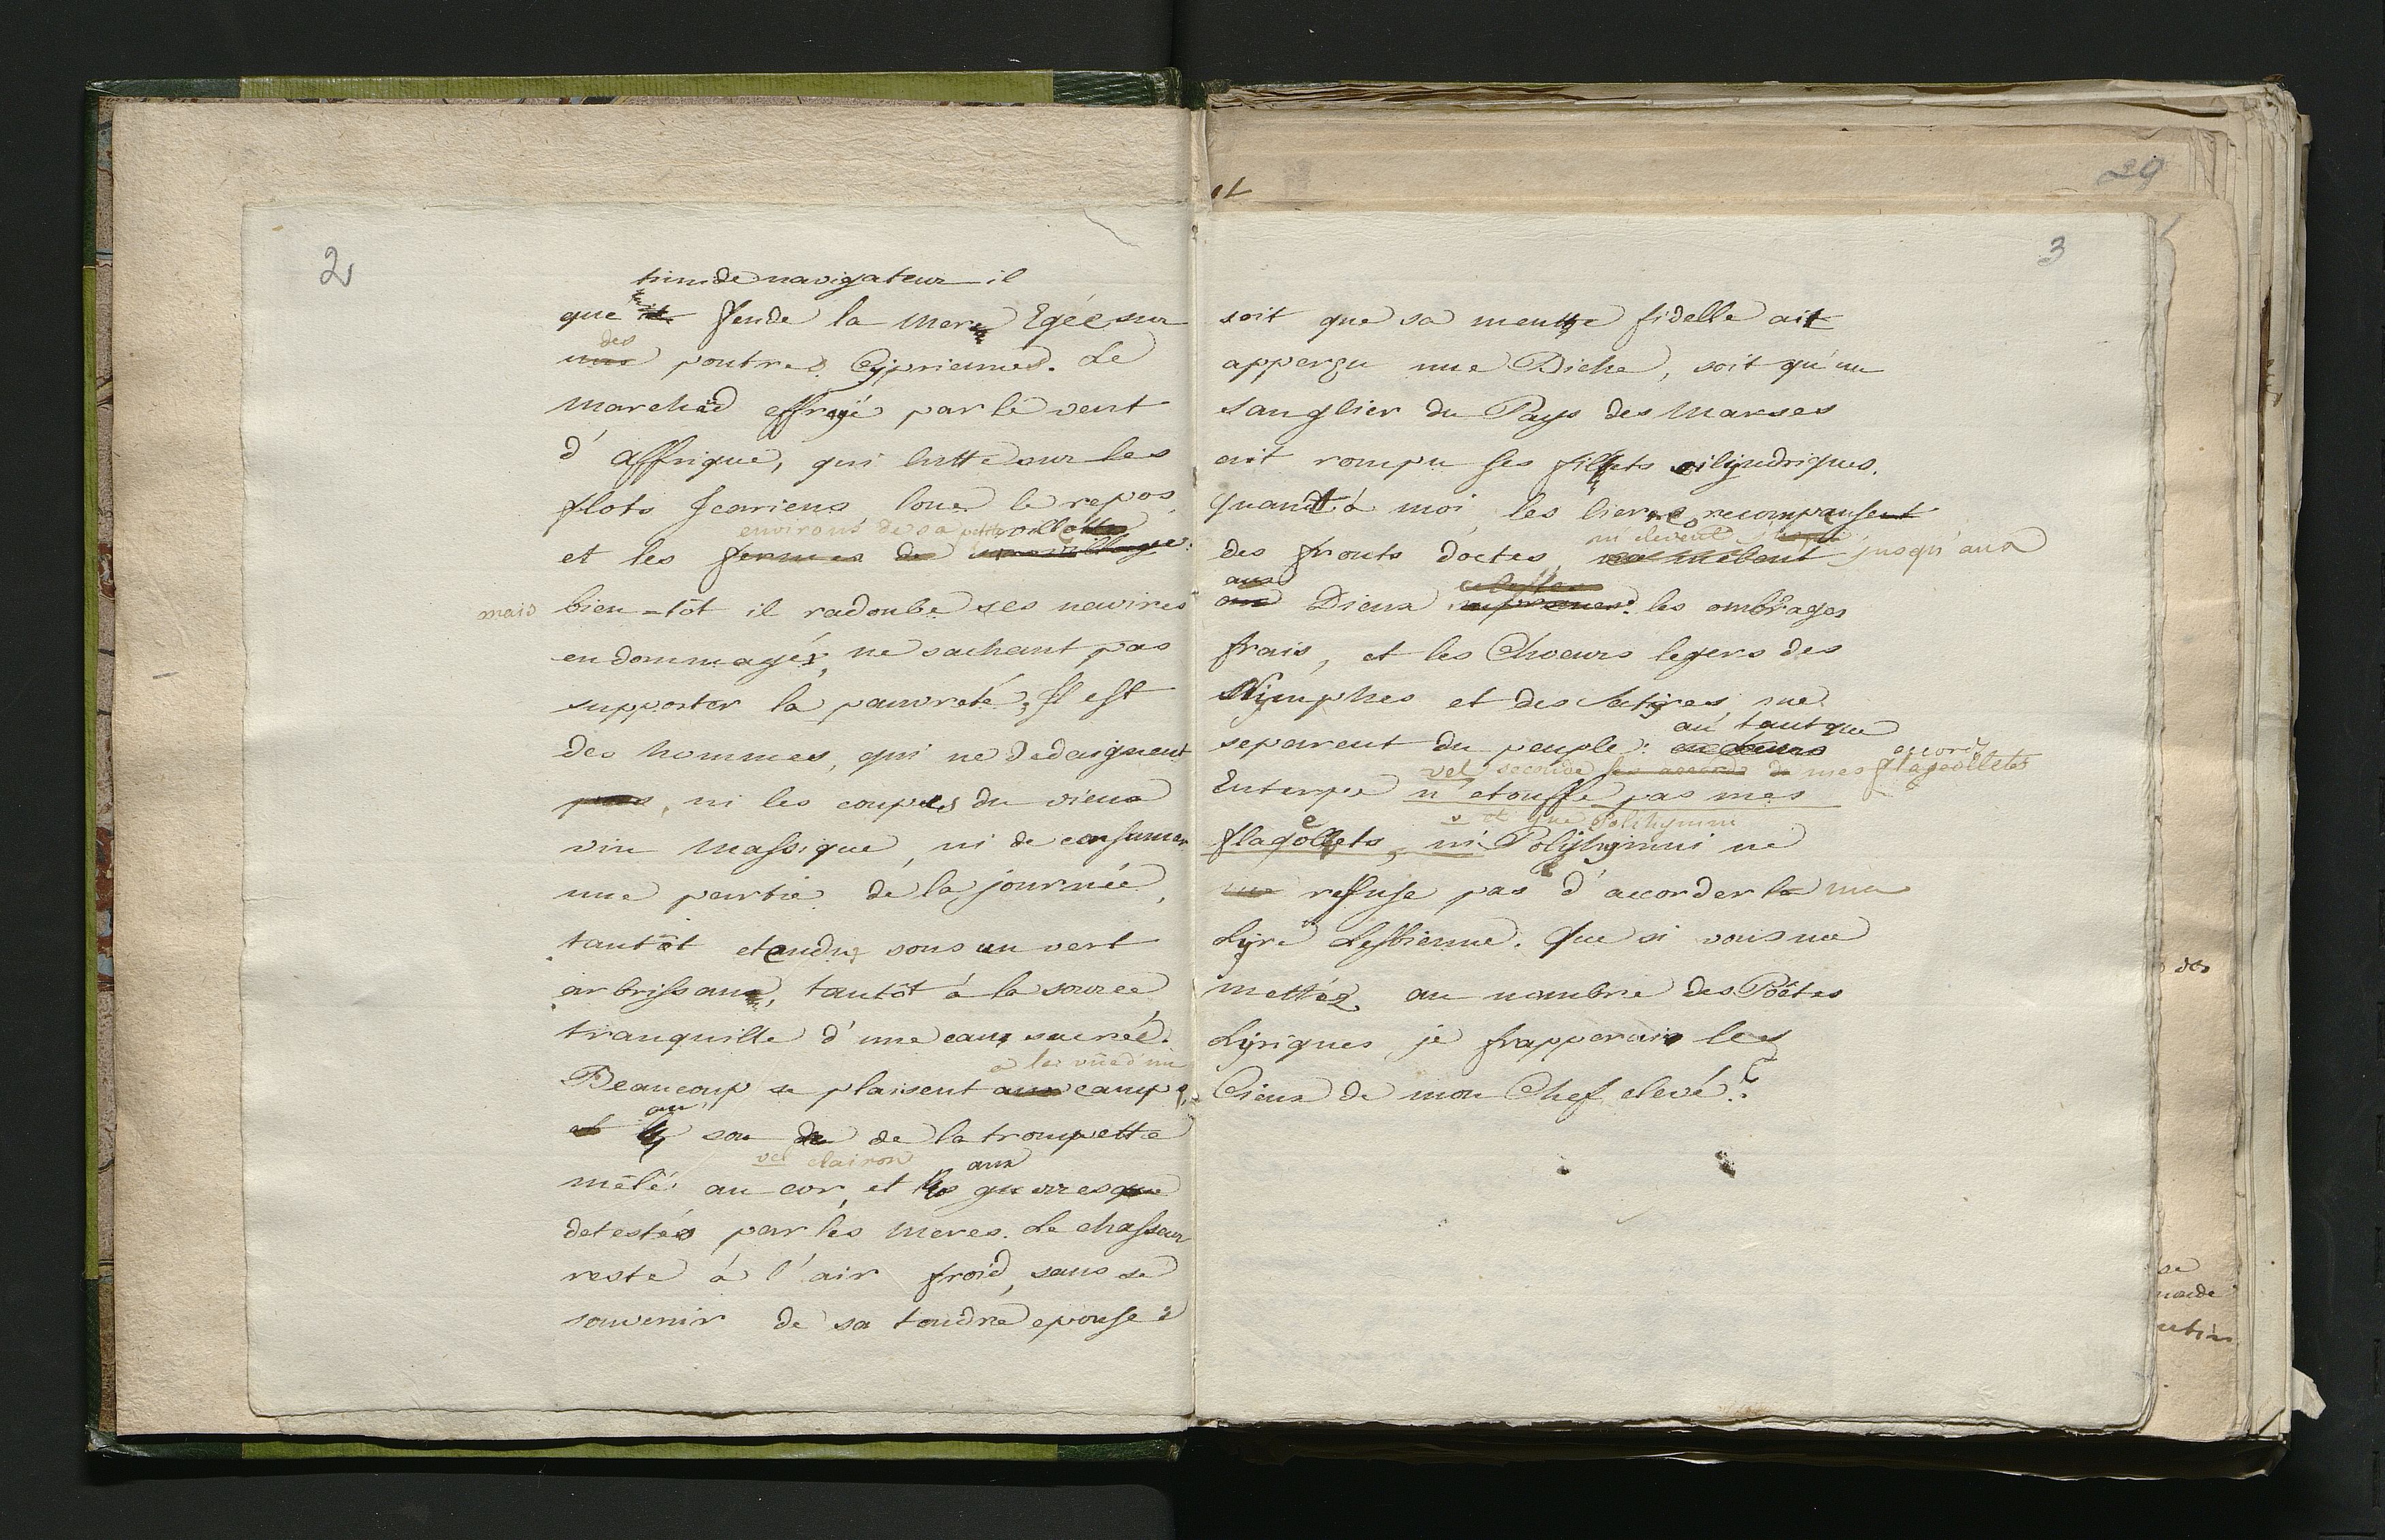 2
timide navigateur il
que fende la mer Egée sur
des
poutres Cypriennes. Le
marchäd effrayé par le vent
d'affrique, qui lutte sur les
flots Icariens loue le repos
environs de sa petite ville
et les fermes de
mais bien-tôt il radoube ses navires
endommagés, ne sachant pas
supporter la pauvreté. Il est
des hommes, qui ne dedaignent
pas, ni les coupes du vieux
vin massique, ni de consumer
une partie de la journée,
tantôt etendus sous un vert
arbrisseau, tantôt à la source
tranquille d'une eau sacrée.
à la vüe d'un
Beaucoup se plaisent aux camp,
au
et son de la trompette
vel clairon aux
mêlé au cor, et les guerres
detestés par les meres. Le chasseur
reste à l'air froid, sans se
souvenir de sa tendre epouse
et
29
3
soit que sa meutte fidelle ait
apperçu une Biche, soit qu'un
sanglier du Pays des marses
ait rompu ses fillets cilyndriques.
quant à moi, les lierres recompensent
m'elevent jusqu'aux
des fronts doctes,
aux celestes
Dieux les ombrages
frais, et les Choeurs legers des
Nimphes et des Satyres, me
autant que
separent du peuple:
accords
vel seconde les accords de mes flageollets
Euterpe n'etouffe pas mes
v et que Polihymni
flageollets, ni Polyhymni ne
refuse pas d'accorder la ma
Lyre Lesbienne. Que si vous me
mettéz au nombre des Poëtes
Lyriques je frapperais les
Cieux de mon Chef elevé.
des
se